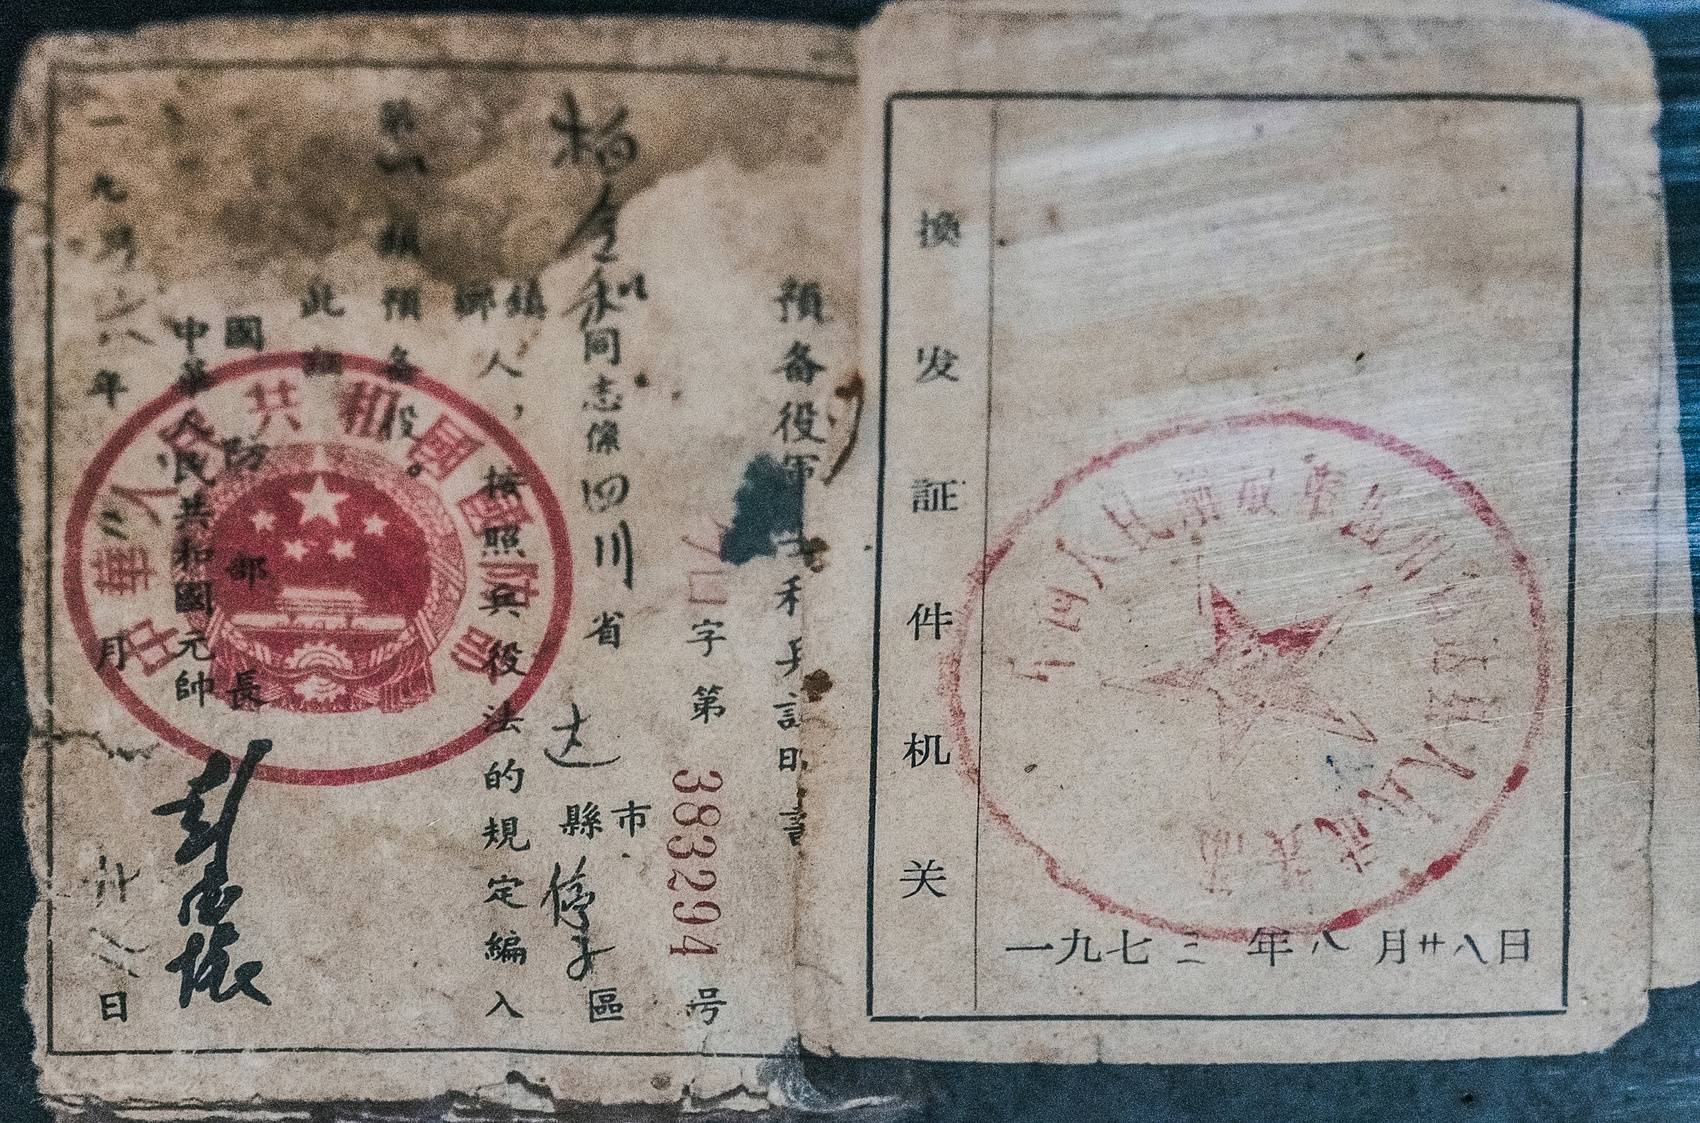 預备役軍士和兵証明書
字第3832294号
柏全和同志係四川省达縣市停子區
鄉鎮人，按照兵役法的規定編入
第一類預备役。
此証
國防部長
中華人民共和國元帥
彭德怀
一九五六年二月廿八日
中華人民共和國國防部
換发証件机关
一九七三年八月廿八日